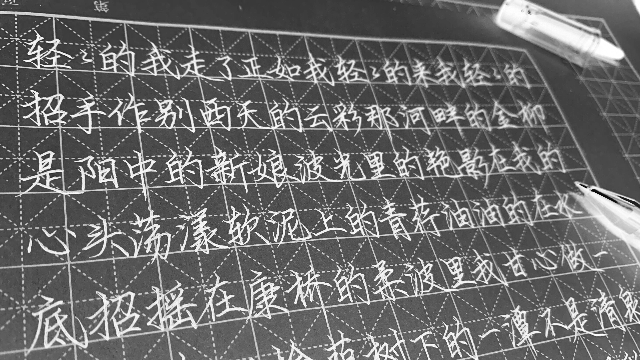 第
轻々的我走了正如我轻々的来我轻々的
招手作别西天的云彩那河畔的金柳
是阳中的新娘波光里的艳影在我的
心头荡漾软泥上的青荇油油的在水
底招摇在康桥的柔波里我甘心做一
荫树下的一潭不是清